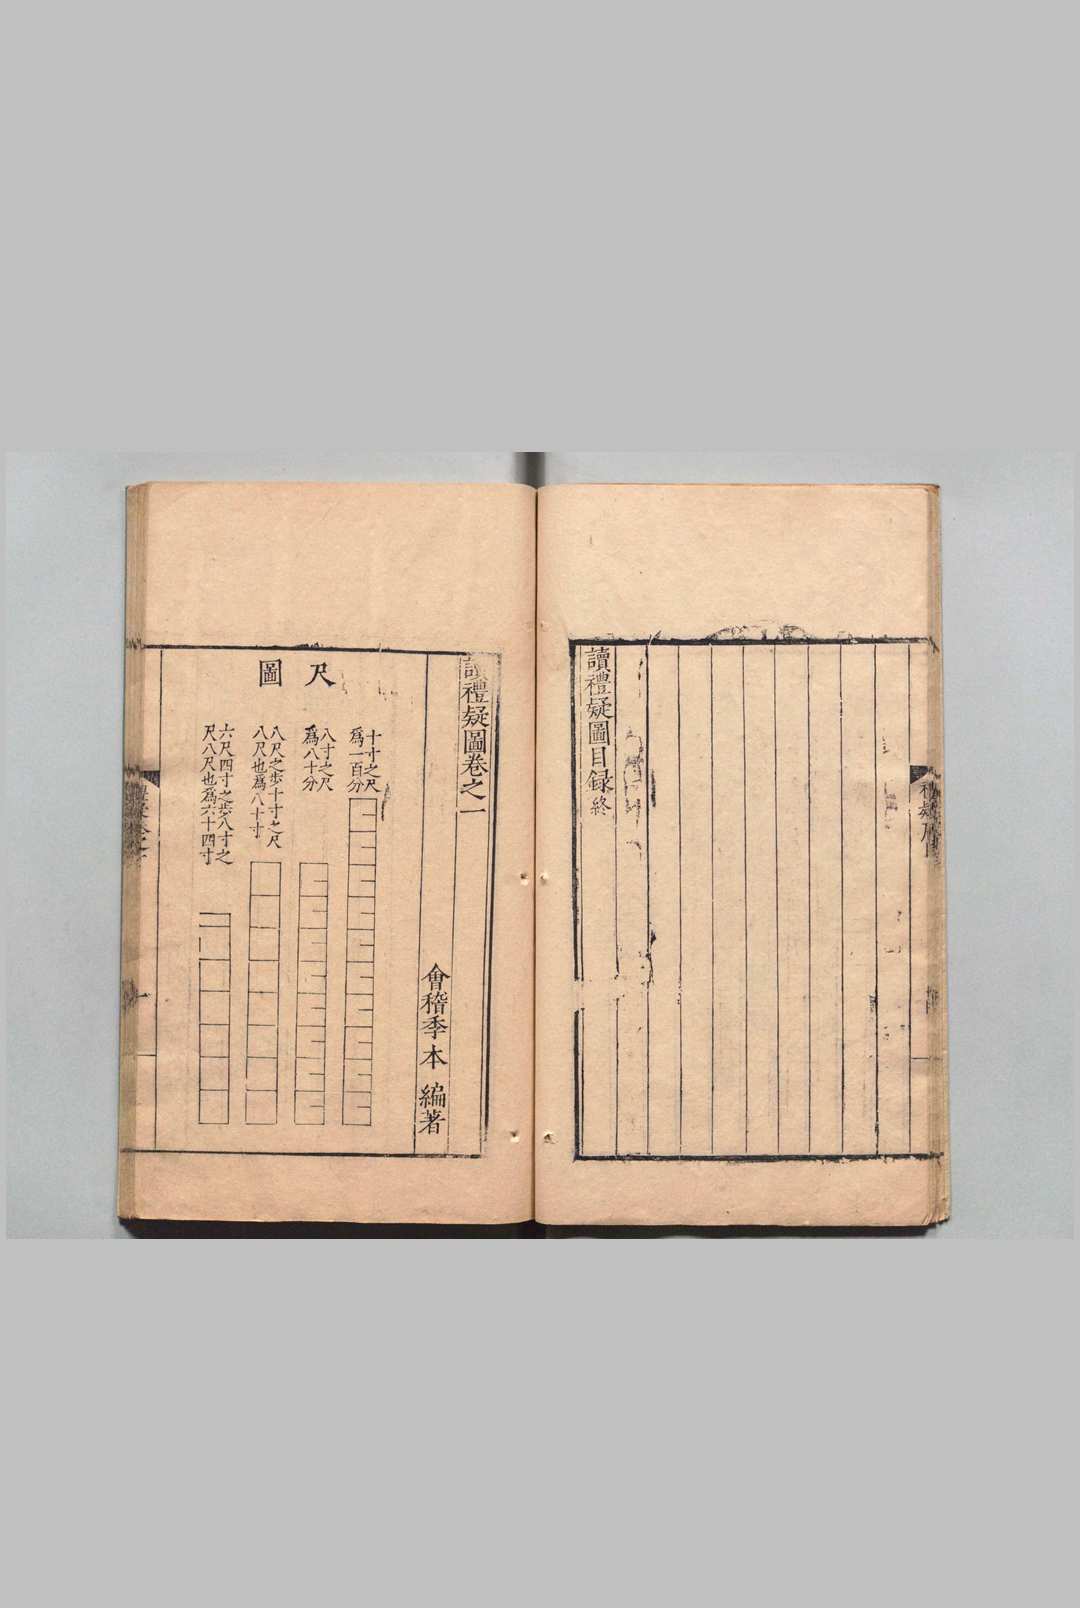 讀禮疑圖目録終
讀禮疑圖卷之一
會稽季本編著
尺圖
十寸之尺
爲一百分
八寸之尺
爲八十分
八尺之步十寸之尺
八尺也爲八十寸
六尺四寸之步八寸之
尺八尺也爲六十四寸